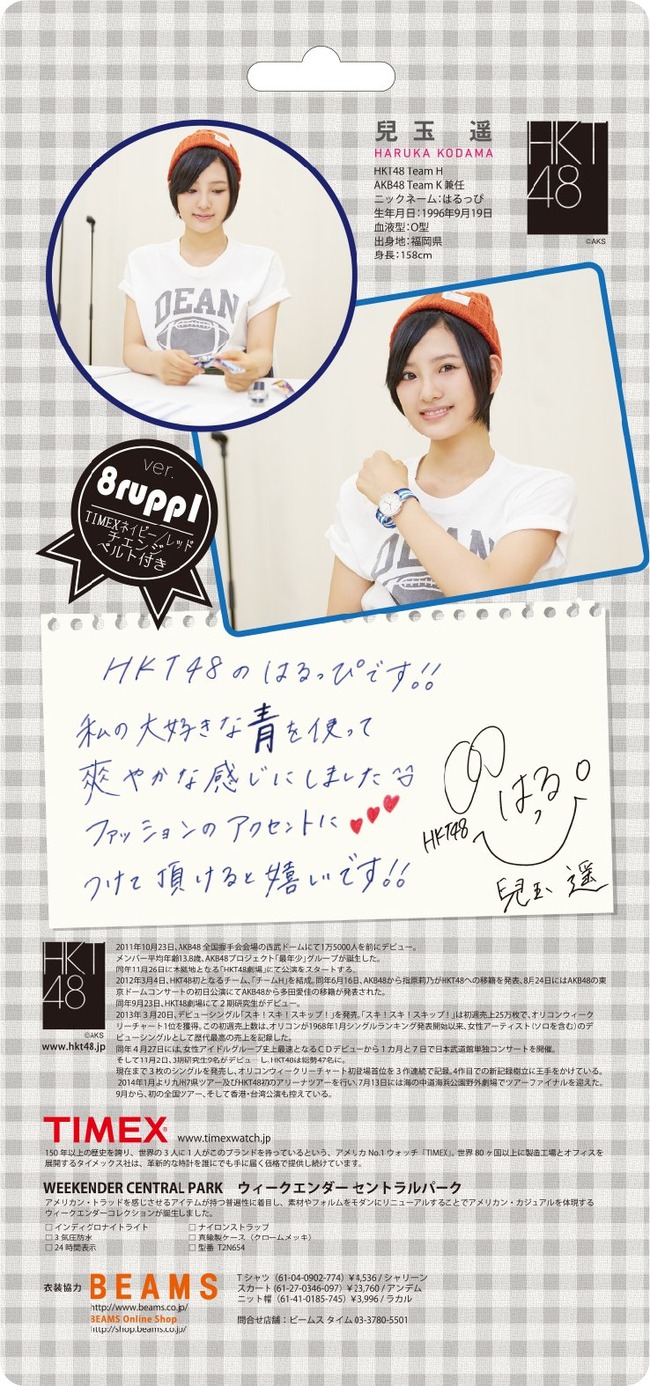 兒玉 遥
HARUKA KODAMA
HKT48 Team H
AKB48 Team K 兼任
ニックネーム：はるっぴ
生年月日：1996年9月19日
血液型：O型
出身地：福岡県
身長：158cm
HKT
48
©AKS
DEAN
DEAN
ver.
8ruppI
TIMEXネイビー/レッド
チエンジ
ベルト付き
HKT48の はるっぴです!!
私の大好きな青を使って
爽やかな感じにしました
ファッションのアクセントに
つけて頂けると嬉しいです!!
はるっ
HKT48
兒玉 遥
HKT
48
©AKS
www.hkt48.jp
2011年10月23日、AKB48 全国握手会会場の西武ドームにて1万5000人を前にデビュー。
メンバー平均年齢13.8歳、AKB48プロジェクト「最年少」グループが誕生した。
同年11月26日に本拠地となる「HKT48劇場」にて公演をスタートする。
2012年3月4日、HKT48初となるチーム、「チームH」を結成。同年6月16日、AKB48から指原莉乃がHKT48への移籍を発表、8月24日にはAKB48の東
京ドームコンサートの初日公演にてAKB48から多田愛佳の移籍が発表された。
同年9月23日、HKT48劇場にて2期研究生がデビュー。
2013年3月20日、デビューシングル「スキ！スキ！スキップ！」を発売。「スキ！スキ！スキップ！」は初週売上25万枚で、オリコンウィーク
リーチャート1位を獲得。この初週売上数は、オリコンが1968年1月シングルランキング発表開始以来、女性アーティスト（ソロを含む）のデ
ビューシングルとして歴代最高の売上を記録した。
同年4月27日には、女性アイドルグループ史上最速となるCDデビューから1カ月と7日で日本武道館単独コンサートを開催。
そして11月2日、3期研究生9名がデビューし、HKT48は総勢47名に。
現在まで3枚のシングルを発売し、オリコンウィークリーチャート初登場首位を3作連続で記録。4作目での新記録樹立に王手をかけている。
2014年1月より九州7県ツアー及びHKT48初のアリーナツアーを行い、7月13日には海の中道海浜公園野外劇場でツアーファイナルを迎えた。
9月から、初の全国ツアー、そして香港・台湾公演も控えている。
TIMEX www.timexwatch.jp
150年以上の歴史を誇り、世界の3人に1人がこのブランドを持っているという、アメリカNo.1ウォッチ「TIMEX」。世界80ヶ国以上に製造工場とオフィスを
展開するタイメックス社は、革新的な時計を誰にでも手に届く価格で提供し続けています。
WEEKENDER CENTRAL PARK ウィークエンダー セントラルパーク
アメリカン・トラッドを感じさせるアイテムが持つ普遍性に着目し、素材やフォルムをモダンにリニューアルすることでアメリカン・カジュアルを体現する
ウィークエンダーコレクションが誕生しました。
□ インディグロナイトライト □ ナイロンストラップ
□ 3気圧防水 □ 真鍮製ケース（クロームメッキ）
□ 24時間表示 □ 型番 T2N654
衣装協力 BEAMS
http://www.beams.co.jp/
BEAMS Online Shop
http://shop.beams.co.jp/
Tシャツ（61-04-0902-774）¥4,536 / シャリーン
スカート（61-27-0346-097）¥23,760 / アンデム
ニット帽（61-41-0185-745）¥3,996 / ラカル
問合せ店舗：ビームス タイム 03-3780-5501